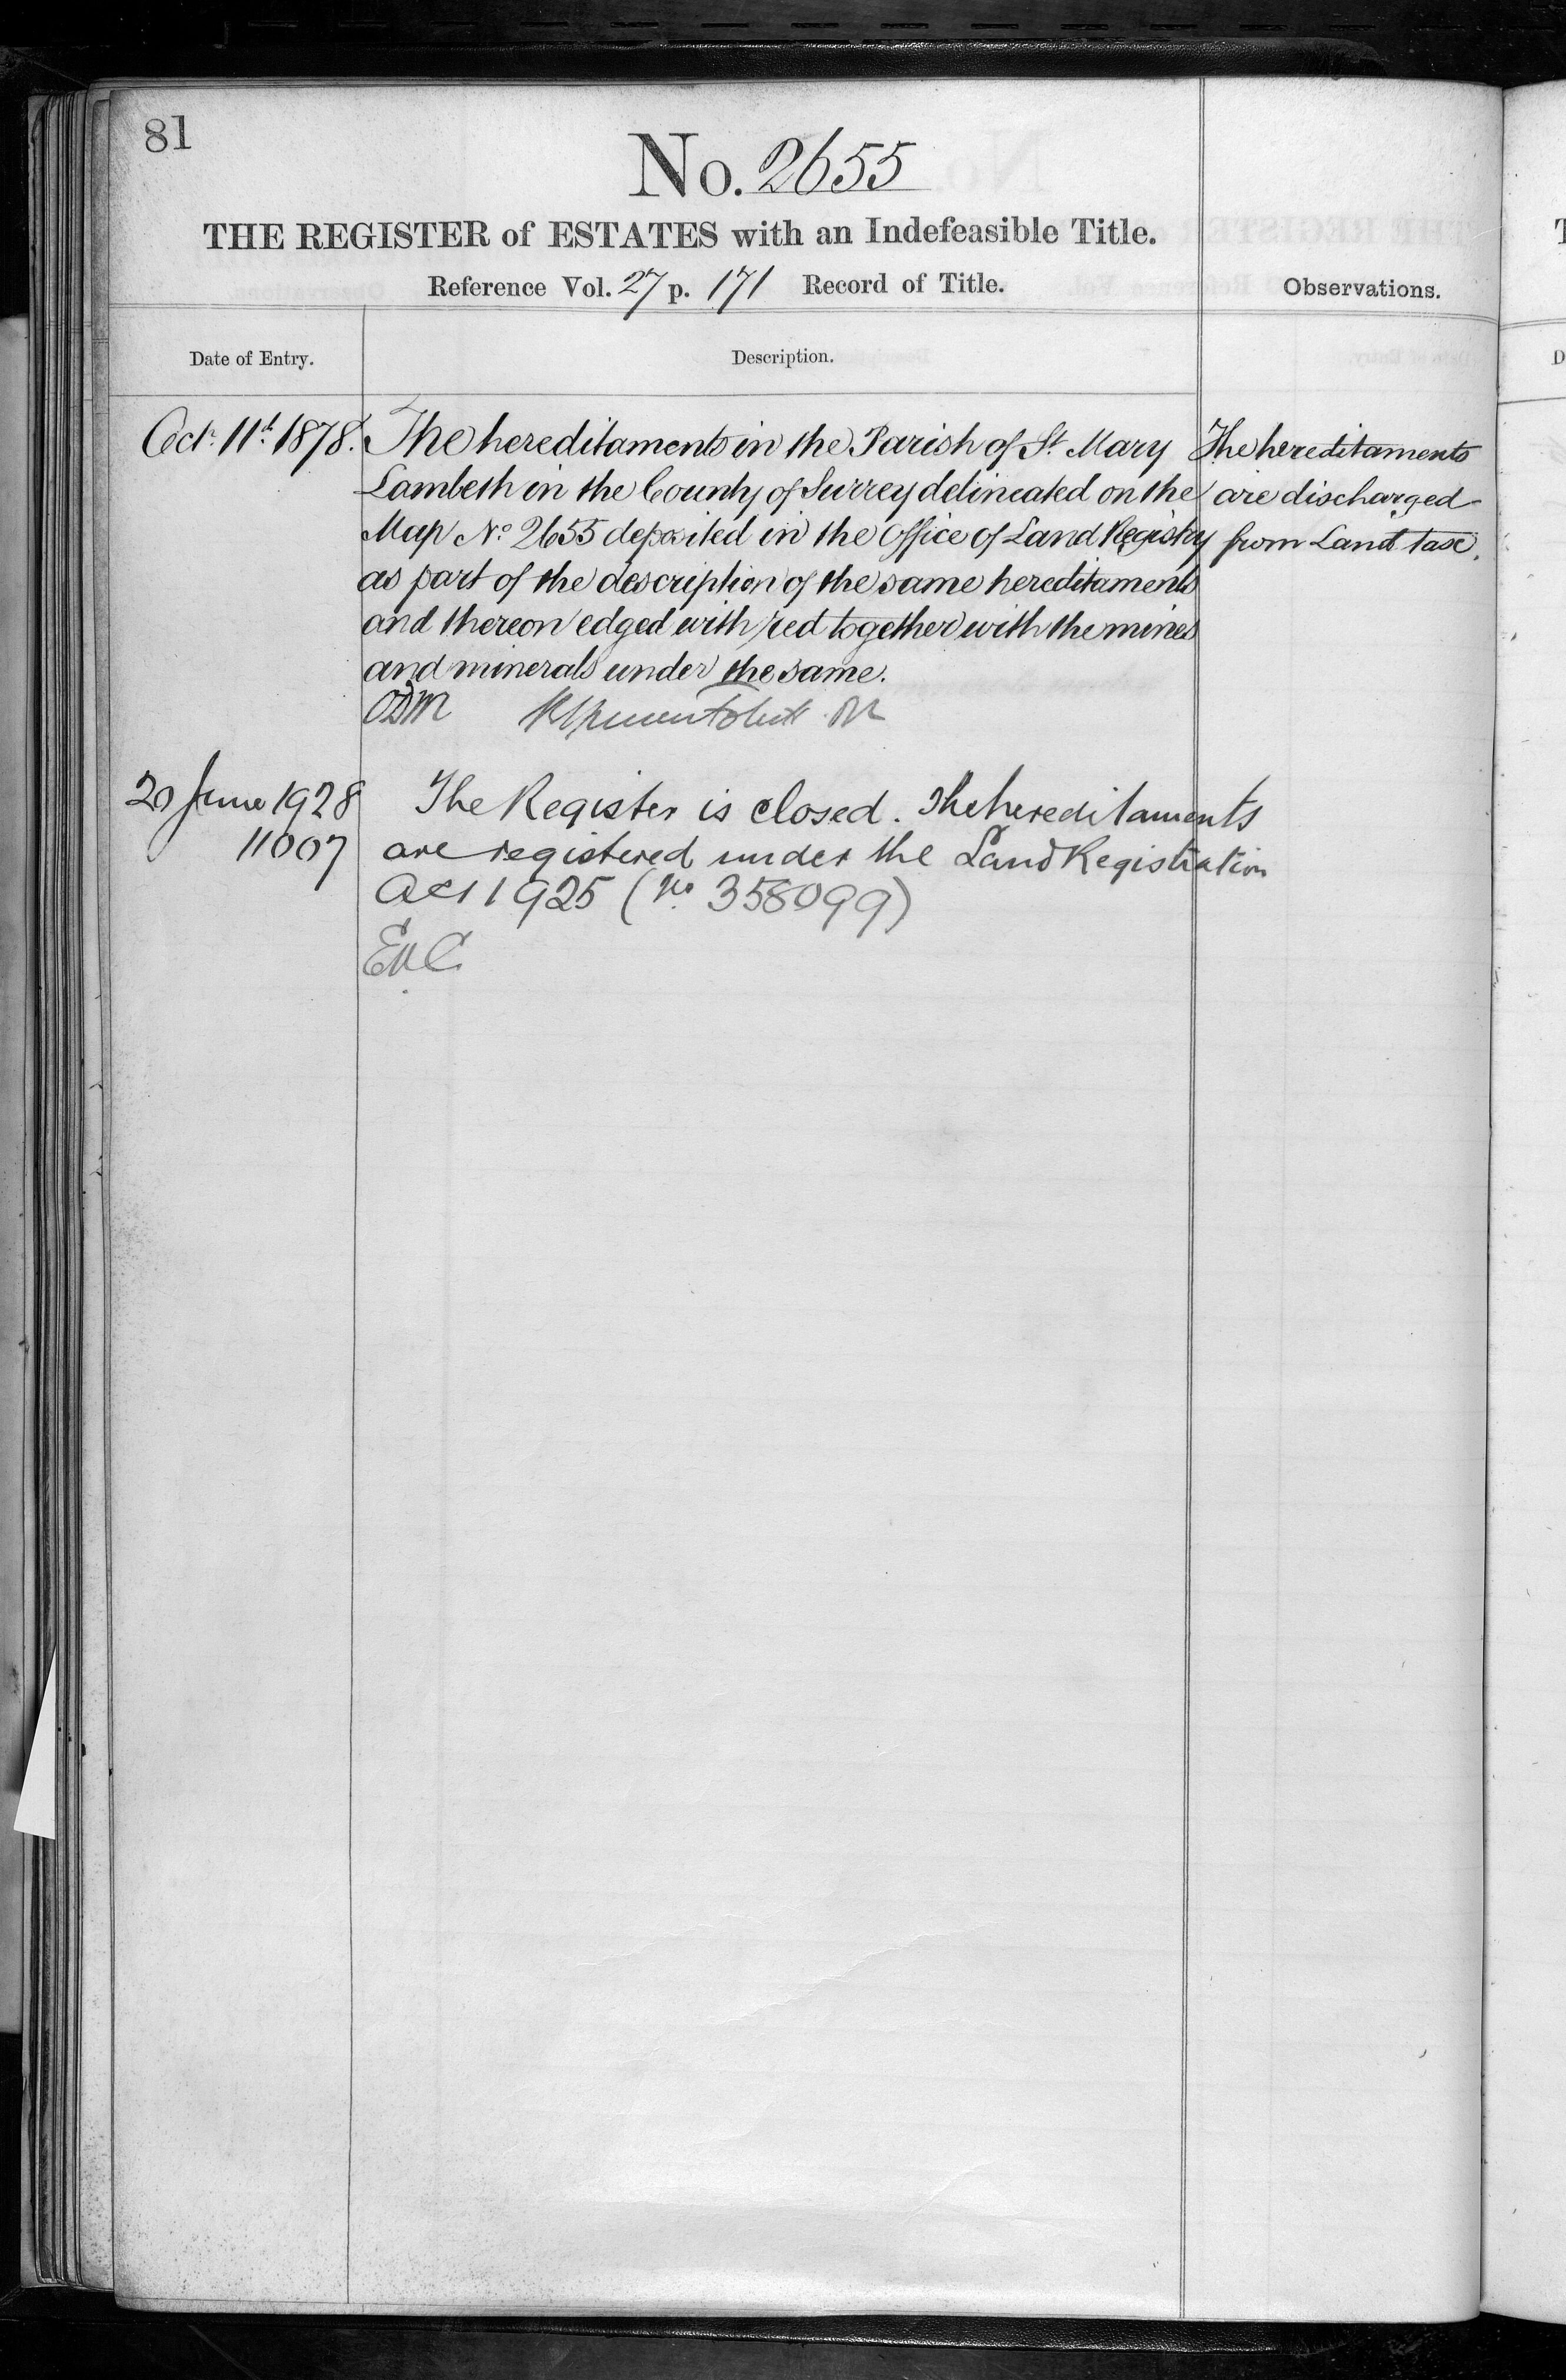 81
No. 2655
THE REGISTER of ESTATES with an Indefeasible Title.
Reference Vol. 27 p. 171 Record of Title.
Observations.
Date of Entry.
Description.
Oct. 11th 1878.
The hereditaments in the Parish of St Mary
Lambeth in the County of Surrey delineated on the
Map No 2655 deposited in the Office of Land Registry
as part of the description of the same hereditaments
and thereon edged with red together with the mines
and minerals under the same.
The hereditaments
are discharged
from Land tax.
20 June 1928
11007
The Register is closed. The hereditaments
are registered under the Land Registration
Act 1925 (No. 358099)